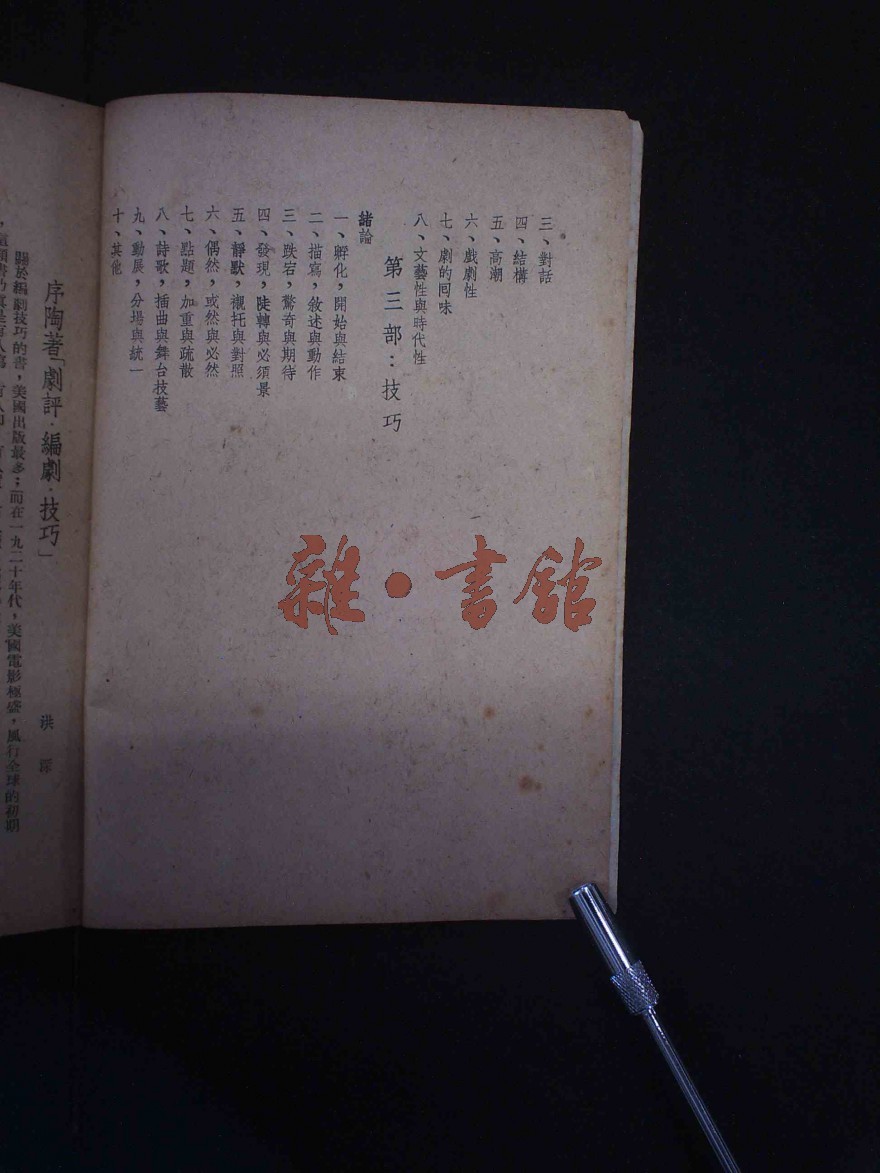 三、對話
四、結構
五、高潮
六、戲劇性
七、劇的囘味
八、文藝性與時代性
第三部：技巧
緒論
一、孵化，開始與結束
二、描寫，敘述與動作
三、跌宕，驚奇與期待
四、發現，陡轉與必須景
五、靜默，襯托與對照
六、偶然，或然與必然
七、點題，加重與疏散
八、詩歌，插曲與舞台技藝
九、動展，分場與統一
十、其他
雜·書館
序陶著「劇評·編劇·技巧」
洪深
關於編劇技巧的書，美國出版最多；而在一九二十年代，美國電影極盛，風行全球的初期